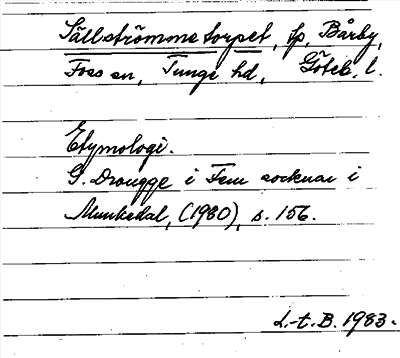 Sällströmmetorpet, lp, Bårby,
Foss sn, Tunge hd, Göteb. l.
Etymologi.
G. Drougge i Fem socknar i
Munkedal, (1980), s. 156.
L-t. B. 1983.